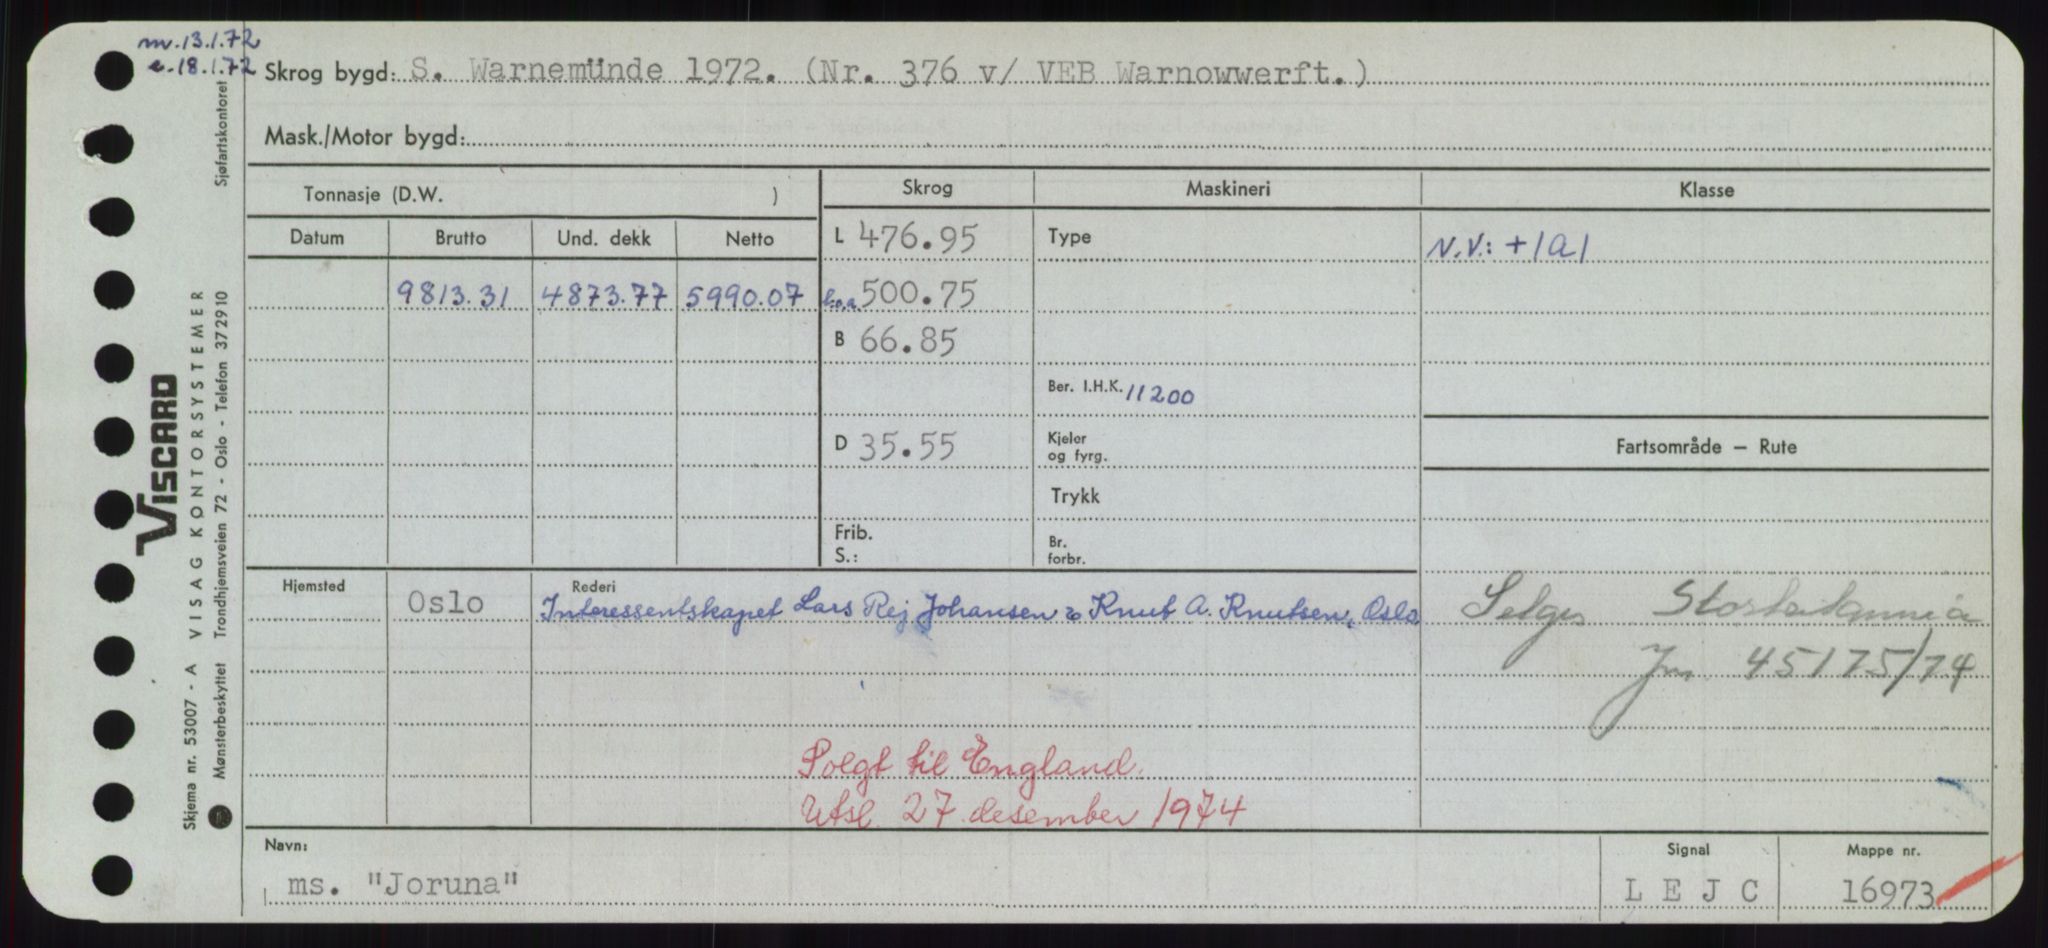 nv. 13.1.72
e. 18.1.72
Skrog bygd: S. Warnemünde 1972. (Nr. 376 v/ VEB Warnowwerft.)
Mask./Motor bygd:
Tonnasje (D.W. )
Skrog
Maskineri
Klasse
Datum
Brutto
Und. dekk
Netto
L 476.95
Type
N.V.: +1A1
9813.31
4873.77
5990.07
l.o.a. 500.75
B 66.85
Ber. I.H.K. 11200
D 35.55
Kjeler
og fyrg.
Fartsområde – Rute
Trykk
Frib.
S.:
Br.
forbr.
Hjemsted
Oslo
Rederi
Interessentskapet Lars Rej Johansen & Knut A. Knutsen, Oslo
Selges Storbritannia
Jnr. 45175/74
Solgt til England.
Utsl. 27 desember 1974
Navn:
ms. "Joruna"
Signal
L E J C
Mappe nr.
16973
VISCARD
Skjema nr. 53007 - A VISAG KONTORSYSTEMER
Mønsterbeskyttet Trondhjemsveien 72 - Oslo - Telefon 372910 Sjøfartskontoret